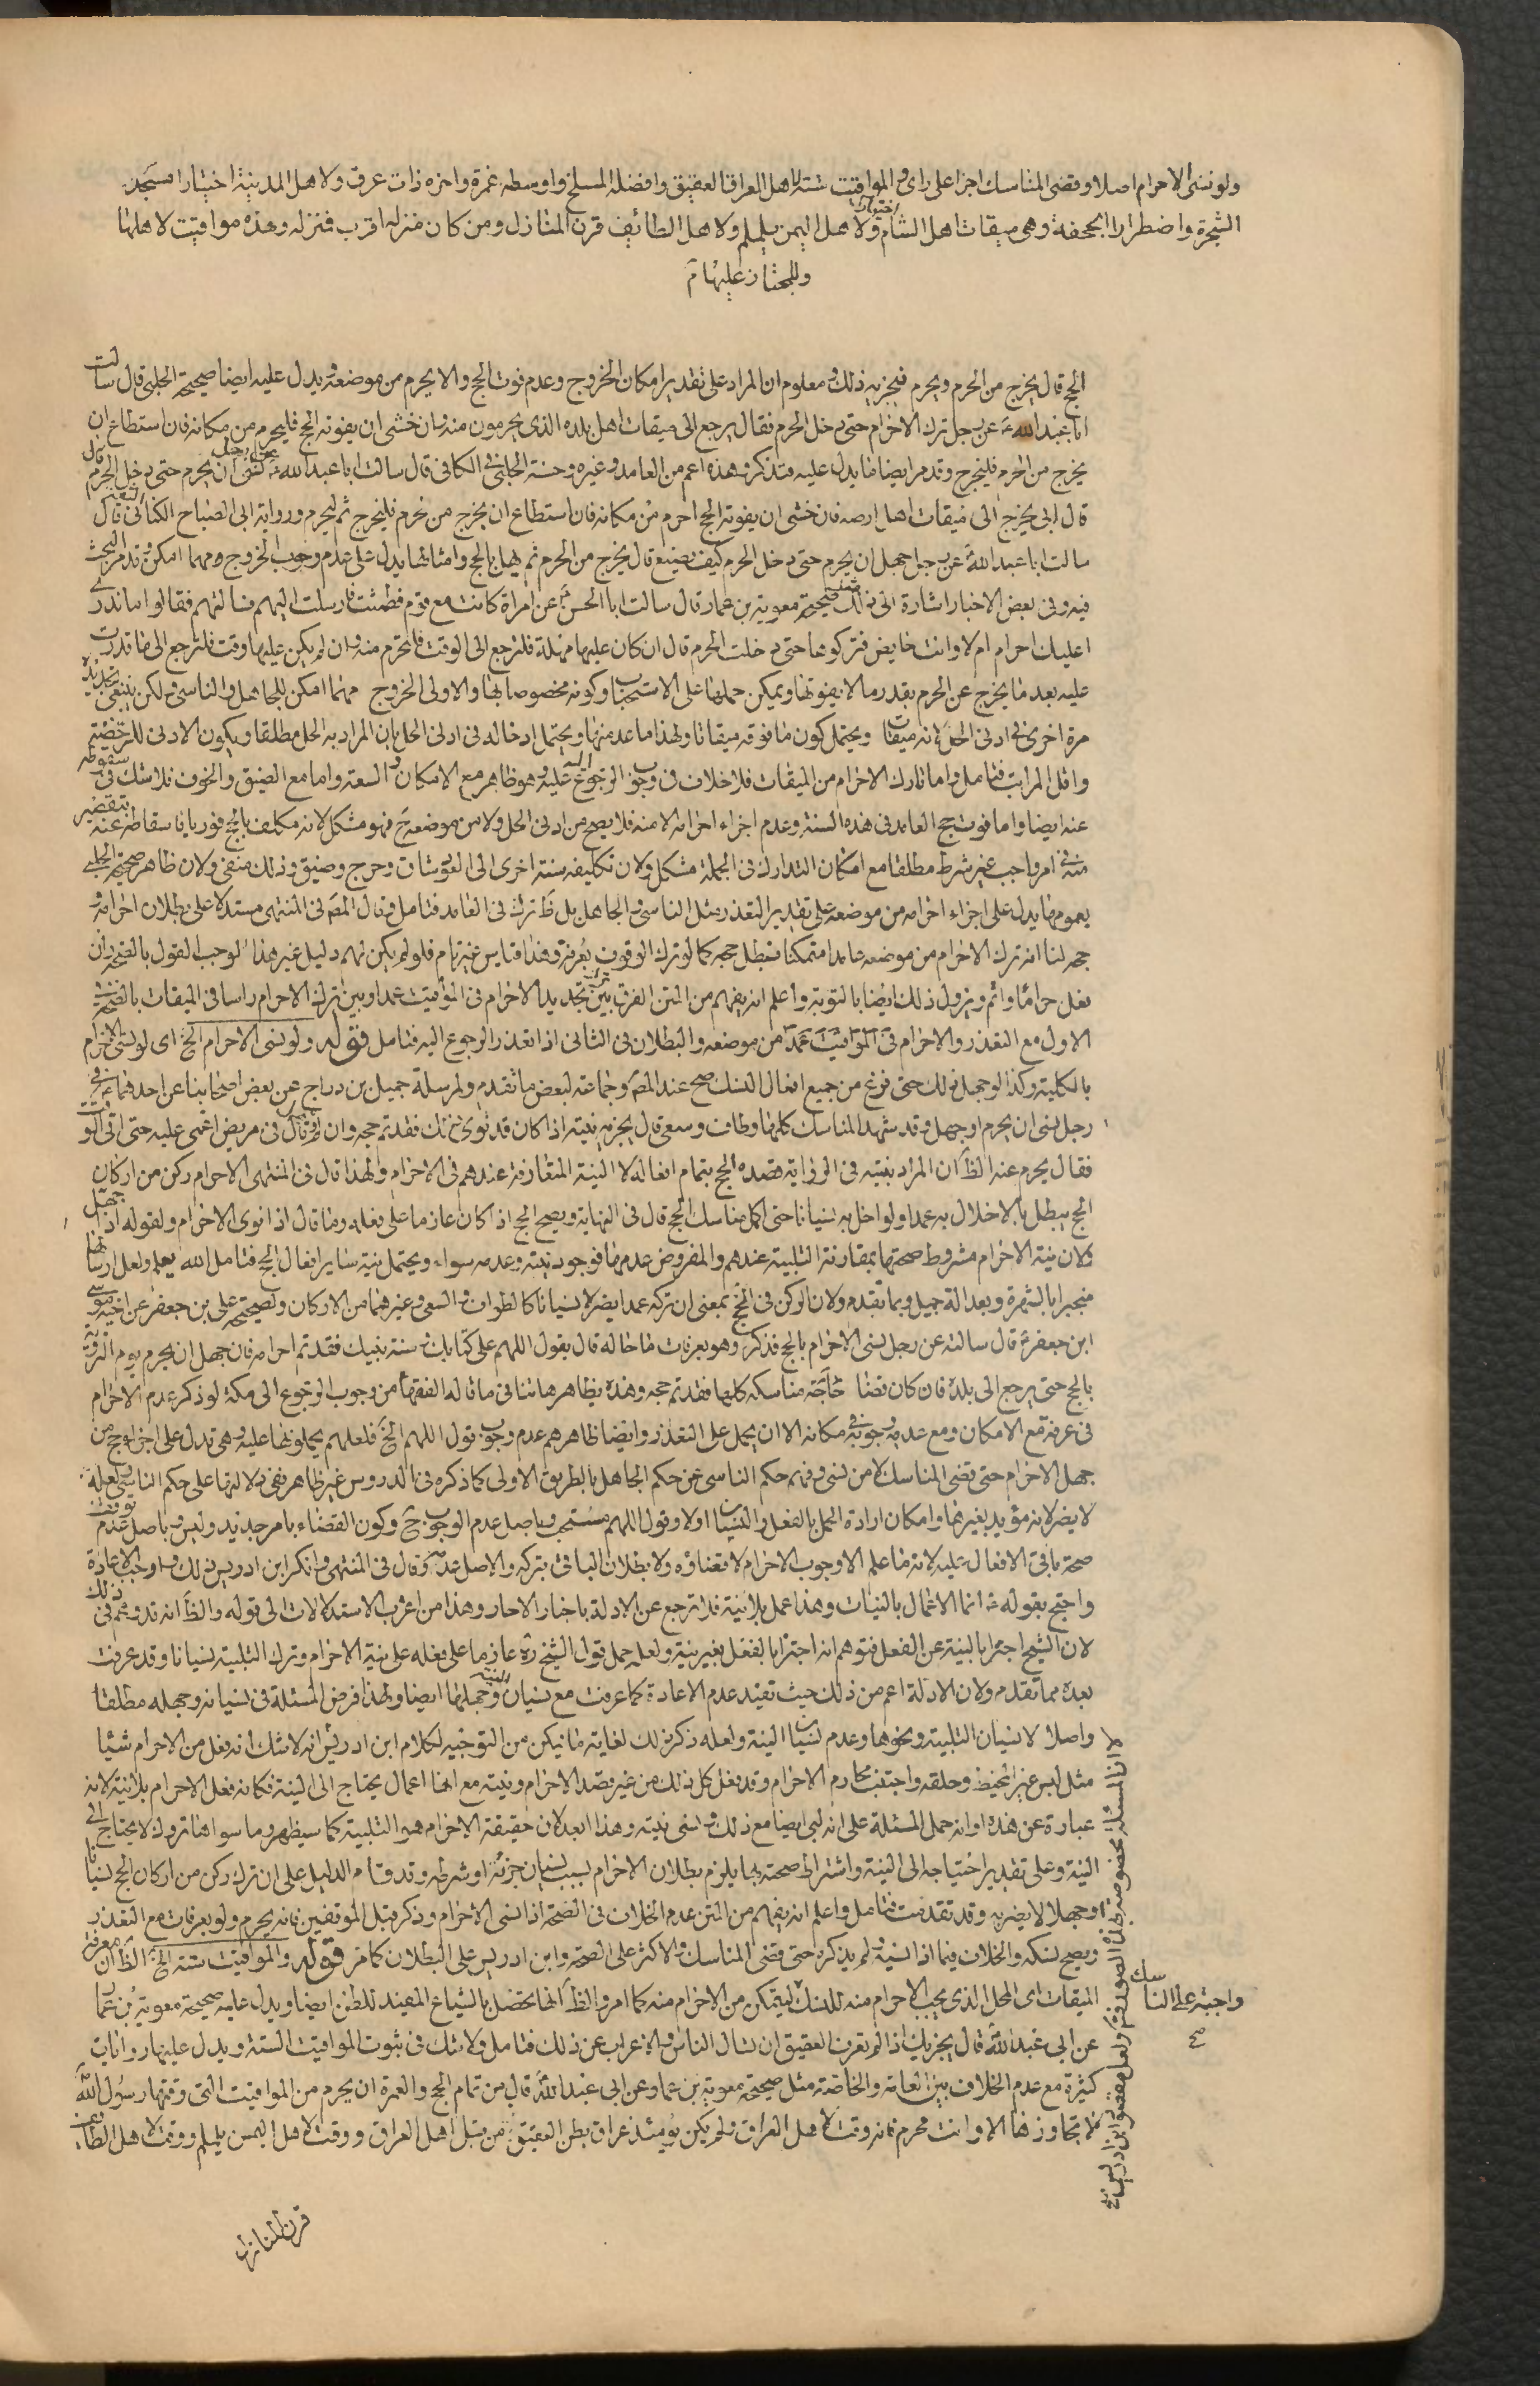 ولو نسى الاحرام اصلا وقضى المناسك اجزا على راى والمواقيت ستة لاهل العراق العقيق وافضله المسلخ واوسطه غمرة واخره ذات عرق ولاهل المدينة اختيارا مسجد
الشجرة واضطرارا الجحفة وهى ميقات اهل الشام اختيارا ولاهل اليمن يلملم ولاهل الطائف قرن المنازل ومن كان منزله اقرب فمنزله وهذه مواقيت لاهلها
وللمجتاز عليها م
الحج قال يخرج من الحرم ويحرم فيجزيه ذلك ومعلوم ان المراد على تقدير امكان الخروج وعدم فوت الحج والا يحرم من موضعه ويدل عليه ايضا صحيحة الحلبى قال سالت
ابا عبد الله ع عن رجل ترك الاحرام حتى دخل الحرم فقال يرجع الى ميقات اهل بلده الذى يحرمون منه فان خشى ان يفوته الحج فليحرم من مكانه فان استطاع ان
يخرج من الحرم فليخرج وقد مر ايضا ما يدل عليه فتذكر وهذه اعم من العامد وغيره وحسنة الحلبى فى الكافى قال سالت ابا عبد الله ع عن رجل نسى ان يحرم حتى دخل الحرم قال
قال ابى يخرج الى ميقات اهل ارضه فان خشى ان يفوته الحج احرم من مكانه فان استطاع ان يخرج من الحرم فليخرج ثم ليحرم ورواية ابى الصباح الكنانى قال
سالت ابا عبد الله ع عن رجل جهل ان يحرم حتى دخل الحرم كيف يصنع قال يخرج من الحرم ثم يهل بالحج وامثالها يدل على عدم وجوب الخروج مهما امكن وقد مر البحث
فيه وفى بعض الاخبار اشارة الى ذلك مثل صحيحة معوية بن عمار قال سالت ابا الحسن ع عن امراة كانت مع قوم فطمثت فارسلت اليهم فسالتهم فقالوا ما ندرى
اعليك احرام ام لا وانت حايض فتركوها حتى دخلت الحرم قال ان كان عليها مهلة فلترجع الى الوقت فلتحرم منه وان لم يكن عليها وقت فلترجع الى ما قدرت
عليه بعد ما يخرج عن الحرم بقدر ما لا يفوتها ويمكن حملها على الاستحباب وكونه مخصوصا بها والاولى الخروج مهما امكن للجاهل والناسى ولكن ينبغى تجديده
مرة اخرى فى ادنى الحل فانه ميقات ويحتمل كون ما فوقه ميقاتا ولهذا ما عد منها ويحتمل ادخاله فى ادنى الحل بان المراد به الحل مطلقا ويكون الادنى للرخصة
واقل المراتب فتامل واما تارك الاحرام من الميقات فلا خلاف فى وجوب الرجوع اليه عليه وهو ظاهر مع الامكان والسعة واما مع الضيق والخوف فلا شك فى سقوطه
عنه ايضا واما فوت حج العامد فى هذه السنة وعدم اجزاء احرامه الا منه فلا يصح من ادنى الحل ولا من موضعه ح فهو مشكل لانه مكلف بالحج فوريا فاسقاطه عنه بتقصير
منه فى امر واجب غير شرط مطلقا مع امكان التدارك فى الجملة مشكل ولان تكليفه سنة اخرى الى العود شاق وحرج وضيق وذلك منفى ولان ظاهر صحيحة الحلبى
بعمومها يدل على اجزاء احرامه من موضعه على تقدير التعذر مثل الناسى والجاهل بل ظ ترك فى العامد فتامل وقال المص فى المنتهى مستدلا على بطلان احرامه
حجه لنا انه ترك الاحرام من موضعه عامدا متمكنا فبطل حجه كما لو ترك الوقوف بعرفة وهذا قياس غير تام فلو لم يكن لهم دليل غير هذا لوجب القول بالصحة وان
فعل حراما واثم ويزول ذلك ايضا بالتوبة واعلم انه يفهم من المتن الفرق بين ترك تجديد الاحرام فى المواقيت عمدا وبين ترك الاحرام راسا فى الميقات بالصحة فى
الاول مع التعذر والاحرام فى المواقيت عمدا من موضعه والبطلان فى الثانى اذا تعذر الرجوع اليه فتامل قوله ولو نسى الاحرام الخ اى لو نسى الاحرام
بالكلية وكذا لو جهل ذلك حتى فرغ من جميع افعال النسك صح عند المص وجماعة لبعض ما تقدم ولمرسلة جميل بن دراج عن بعض اصحابنا عن احدهما ع فى
رجل نسى ان يحرم او جهل وقد شهد المناسك كلها وطاف وسعى قال يجزيه نيته اذا كان قد نوى ذلك فقد تم حجه وان لم يهل وقال فى مريض اغمى عليه حتى اتى الوقت
فقال يحرم عنه الظ ان المراد بنيته فى الرواية قصده الحج بتمام افعاله لا النية المتعارفة عندهم فى الاحرام ولهذا قال فى المنتهى الاحرام ركن من اركان
الحج يبطل بالاخلال به عمدا ولو اخل به نسيانا حتى اكمل مناسك الحج قال فى النهاية ويصح الحج اذا كان عازما على فعله وما قال اذا نوى الاحرام ولقوله اذا جهل
كلان نية الاحرام مشروط صحتها بمقارنة التلبية عندهم والمفروض عدمها فوجود نيته وعدمه سواء ويحتمل نية ساير افعال الحج فتامل الله يعلم ولعل ارسالها
منجبرا بالشهرة وبعدالة جميل وبما تقدم ولان الركن فى الحج بمعنى ان تركه عمدا يضر لا نسيانا كالطواف والسعى وغيرهما من الاركان ولصحيحة على بن جعفر عن اخيه موسى
ابن جعفر ع قال سالته عن رجل نسى الاحرام بالحج فذكر وهو بعرفات ما حاله قال يقول اللهم على كتابك وسنة نبيك فقد تم احرامه فان جهل ان يحرم يوم التروية
بالحج حتى يرجع الى بلده فان كان قضا مناسكه كلها فقد تم حجه وهذه بظاهرها تنافى ما قاله الفقهاء من وجوب الرجوع الى مكة لو ذكر عدم الاحرام
فى عرفة مع الامكان ومع عدمه وجوبه فى مكانه الا ان يحمل على التعذر وايضا ظاهرهم عدم وجوب قول اللهم الخ فلعلهم يحملونها عليه وهى تدل على اجزاء حج من
جهل الاحرام حتى قضى المناسك لا من نسى وفهم حكم الناسى من حكم الجاهل بالطريق الاولى كما ذكره فى الدروس غير ظاهر ففى دلالتها على حكم الناسى تامل ولعله
لا يضر لانه مؤيد بغيرها وامكان ارادة الحمل بالفعل والنسيان اولا وقول اللهم مستحب وباصل عدم الوجوب ح وكون القضاء بامر جديد وليس وباصل عدم توقف
صحة باقى الافعال عليه لانه ما علم الا وجوب الاحرام لا قضاؤه ولا بطلان الباقى بتركه والاصل عدمه وقال فى المنتهى وانكر ابن ادريس ذلك واوجب الاعادة
واحتج بقوله ع انما الاعمال بالنيات وهذا عمل بلا نية فلا ترجع عن الادلة باخبار الاحاد وهذا من اغرب الاستدلالات الى قوله والظ انه قد وهم فى ذلك
لان الشيخ اجتزا بالنية عن الفعل فتوهم انه اجتزا بالفعل بغير نية ولعله حمل قول الشيخ ره عازما على فعله على نية الاحرام وترك التلبية نسيانا وقد عرفت
بعده مما تقدم ولان الادلة اعم من ذلك حيث تفيد عدم الاعادة كما عرفت مع نسيان النية وجهلها ايضا ولهذا فرض المسئلة فى نسيانه وجهله مطلقا
واصلا لا نسيان التلبية ونحوها وعدم نسيان النية ولعله ذكر ذلك لغاية ما يمكن من التوجيه لكلام ابن ادريس انه لا شك انه فعل من الاحرام شيئا
مثل لبس غير المخيط وحلقه واجتنب محارم الاحرام وقد فعل كل ذلك من غير قصد الاحرام ونيته مع انها اعمال يحتاج الى النية فكانه فعل الاحرام بلا نية لانه
عبارة عن هذه او انه حمل المسئلة على انه لبى ايضا مع ذلك ونسى نيته وهذا ابعد لان حقيقة الاحرام هو التلبية كما سيظهر وما سواها تروك لا يحتاج الى
النية وعلى تقدير احتياجه الى النية واشتراط صحته بها يلزم بطلان الاحرام بسبب نسيان جزئه او شرطه وقد قام الدليل على ان ترك ركن من اركان الحج نسيانا
او جهلا لا يضر به وقد تقدمت فتامل واعلم انه يفهم من المتن عدم الخلاف فى الصحة اذا نسى الاحرام وذكر قبل الموقفين فانه يحرم ولو بعرفات مع التعذر
ويصح نسكه والخلاف فيما اذا نسيه ولم يذكره حتى قضى المناسك والاكثر على الصحة وابن ادريس على البطلان كما مر قوله والمواقيت ستة الخ الظ ان معرفة
الميقات اى المحل الذى يجب الاحرام منه للنسك ليتمكن من الاحرام منه كما امر والظ انها يحصل بالشياع المفيد للظن ايضا ويدل عليه صحيحة معوية بن عمار
عن ابى عبد الله ع قال يجزيك اذا لم تعرف العقيق ان تسال الناس والاعراب عن ذلك فتامل ولا شك فى ثبوت المواقيت الستة ويدل عليها روايات
كثيرة مع عدم الخلاف بين العامة والخاصة مثل صحيحة معوية بن عمار عن ابى عبد الله ع قال من تمام الحج والعمرة ان يحرم من المواقيت التى وقتها رسول الله
لا تجاوزها الا وانت محرم فانه وقت لاهل العراق ولم يكن يومئذ عراق بطن العقيق من قبل اهل العراق ووقت لاهل اليمن يلملم ووقت لاهل الطائف
قرن المنازل
واجبة على الناسك
صح